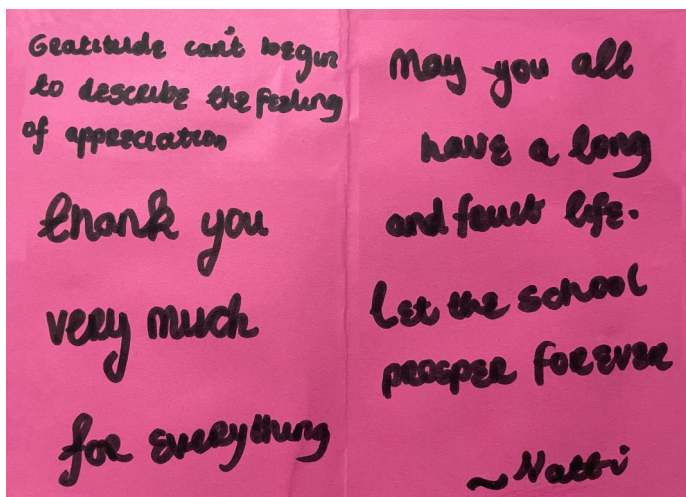 Gratitude can't begin
to describe the feeling
of appreciation
thank you
very much
for everything
May you all
have a long
and life.
let the school
prosper forever